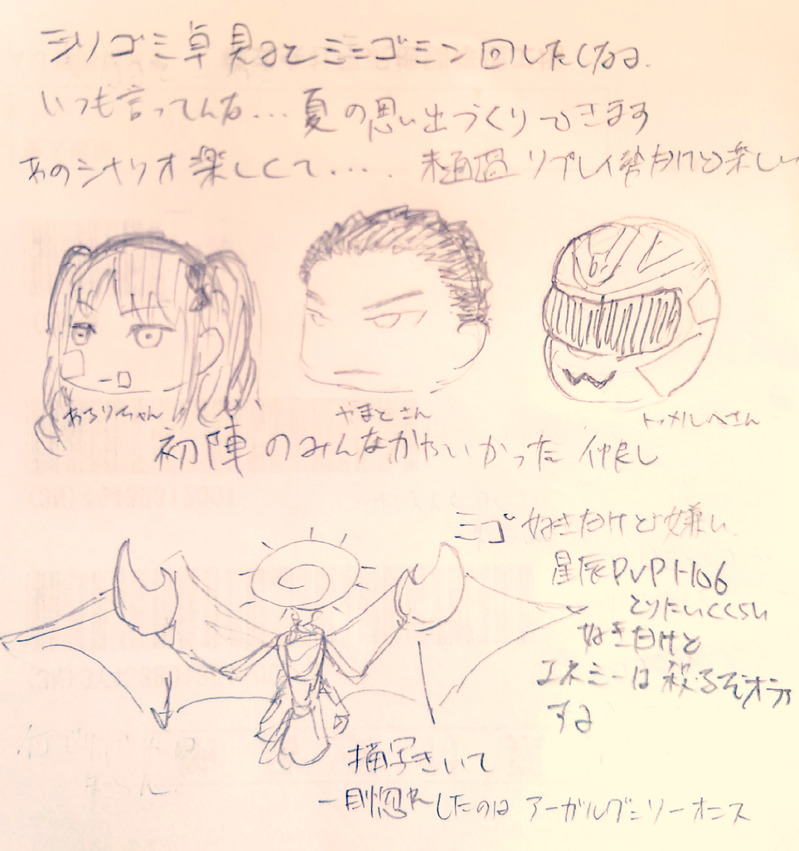 シリゴミ卓見るとミニゴミン回したくなる.
いつも言ってんな...夏の思い出づくりできます
あのシナリオ楽しくて..... 未通過リプレイ勢だけど楽しい
あろりちゃん
やまとさん
トメルヘさん
初陣のみんなかわいかった 仲良し
ミゴ 好きだけど嫌い.
星辰PVP
とりたいくらい
好きだけど
エネミーは殺るぞオラ
する
描写きいて
一目惚れしたのは アーガルグ=リーオニス